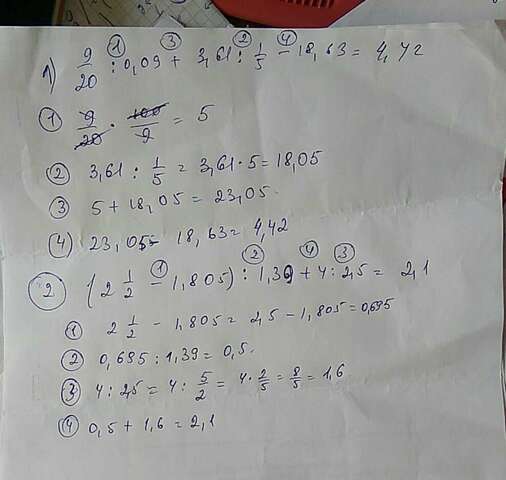 1) 9/20 : 0,09 + 3,61 : 1/5 - 18,63 = 4,42
① 9/20 · 100/9 = 5
② 3,61 : 1/5 = 3,61 · 5 = 18,05
③ 5 + 18,05 = 23,05.
④ 23,05 - 18,63 = 4,42
② (2 1/2 - 1,805) : 1,39 + 4 : 2,5 = 2,1
① 2 1/2 - 1,805 = 2,5 - 1,805 = 0,695
② 0,695 : 1,39 = 0,5.
③ 4 : 2,5 = 4 : 5/2 = 4 · 2/5 = 8/5 = 1,6
④ 0,5 + 1,6 = 2,1